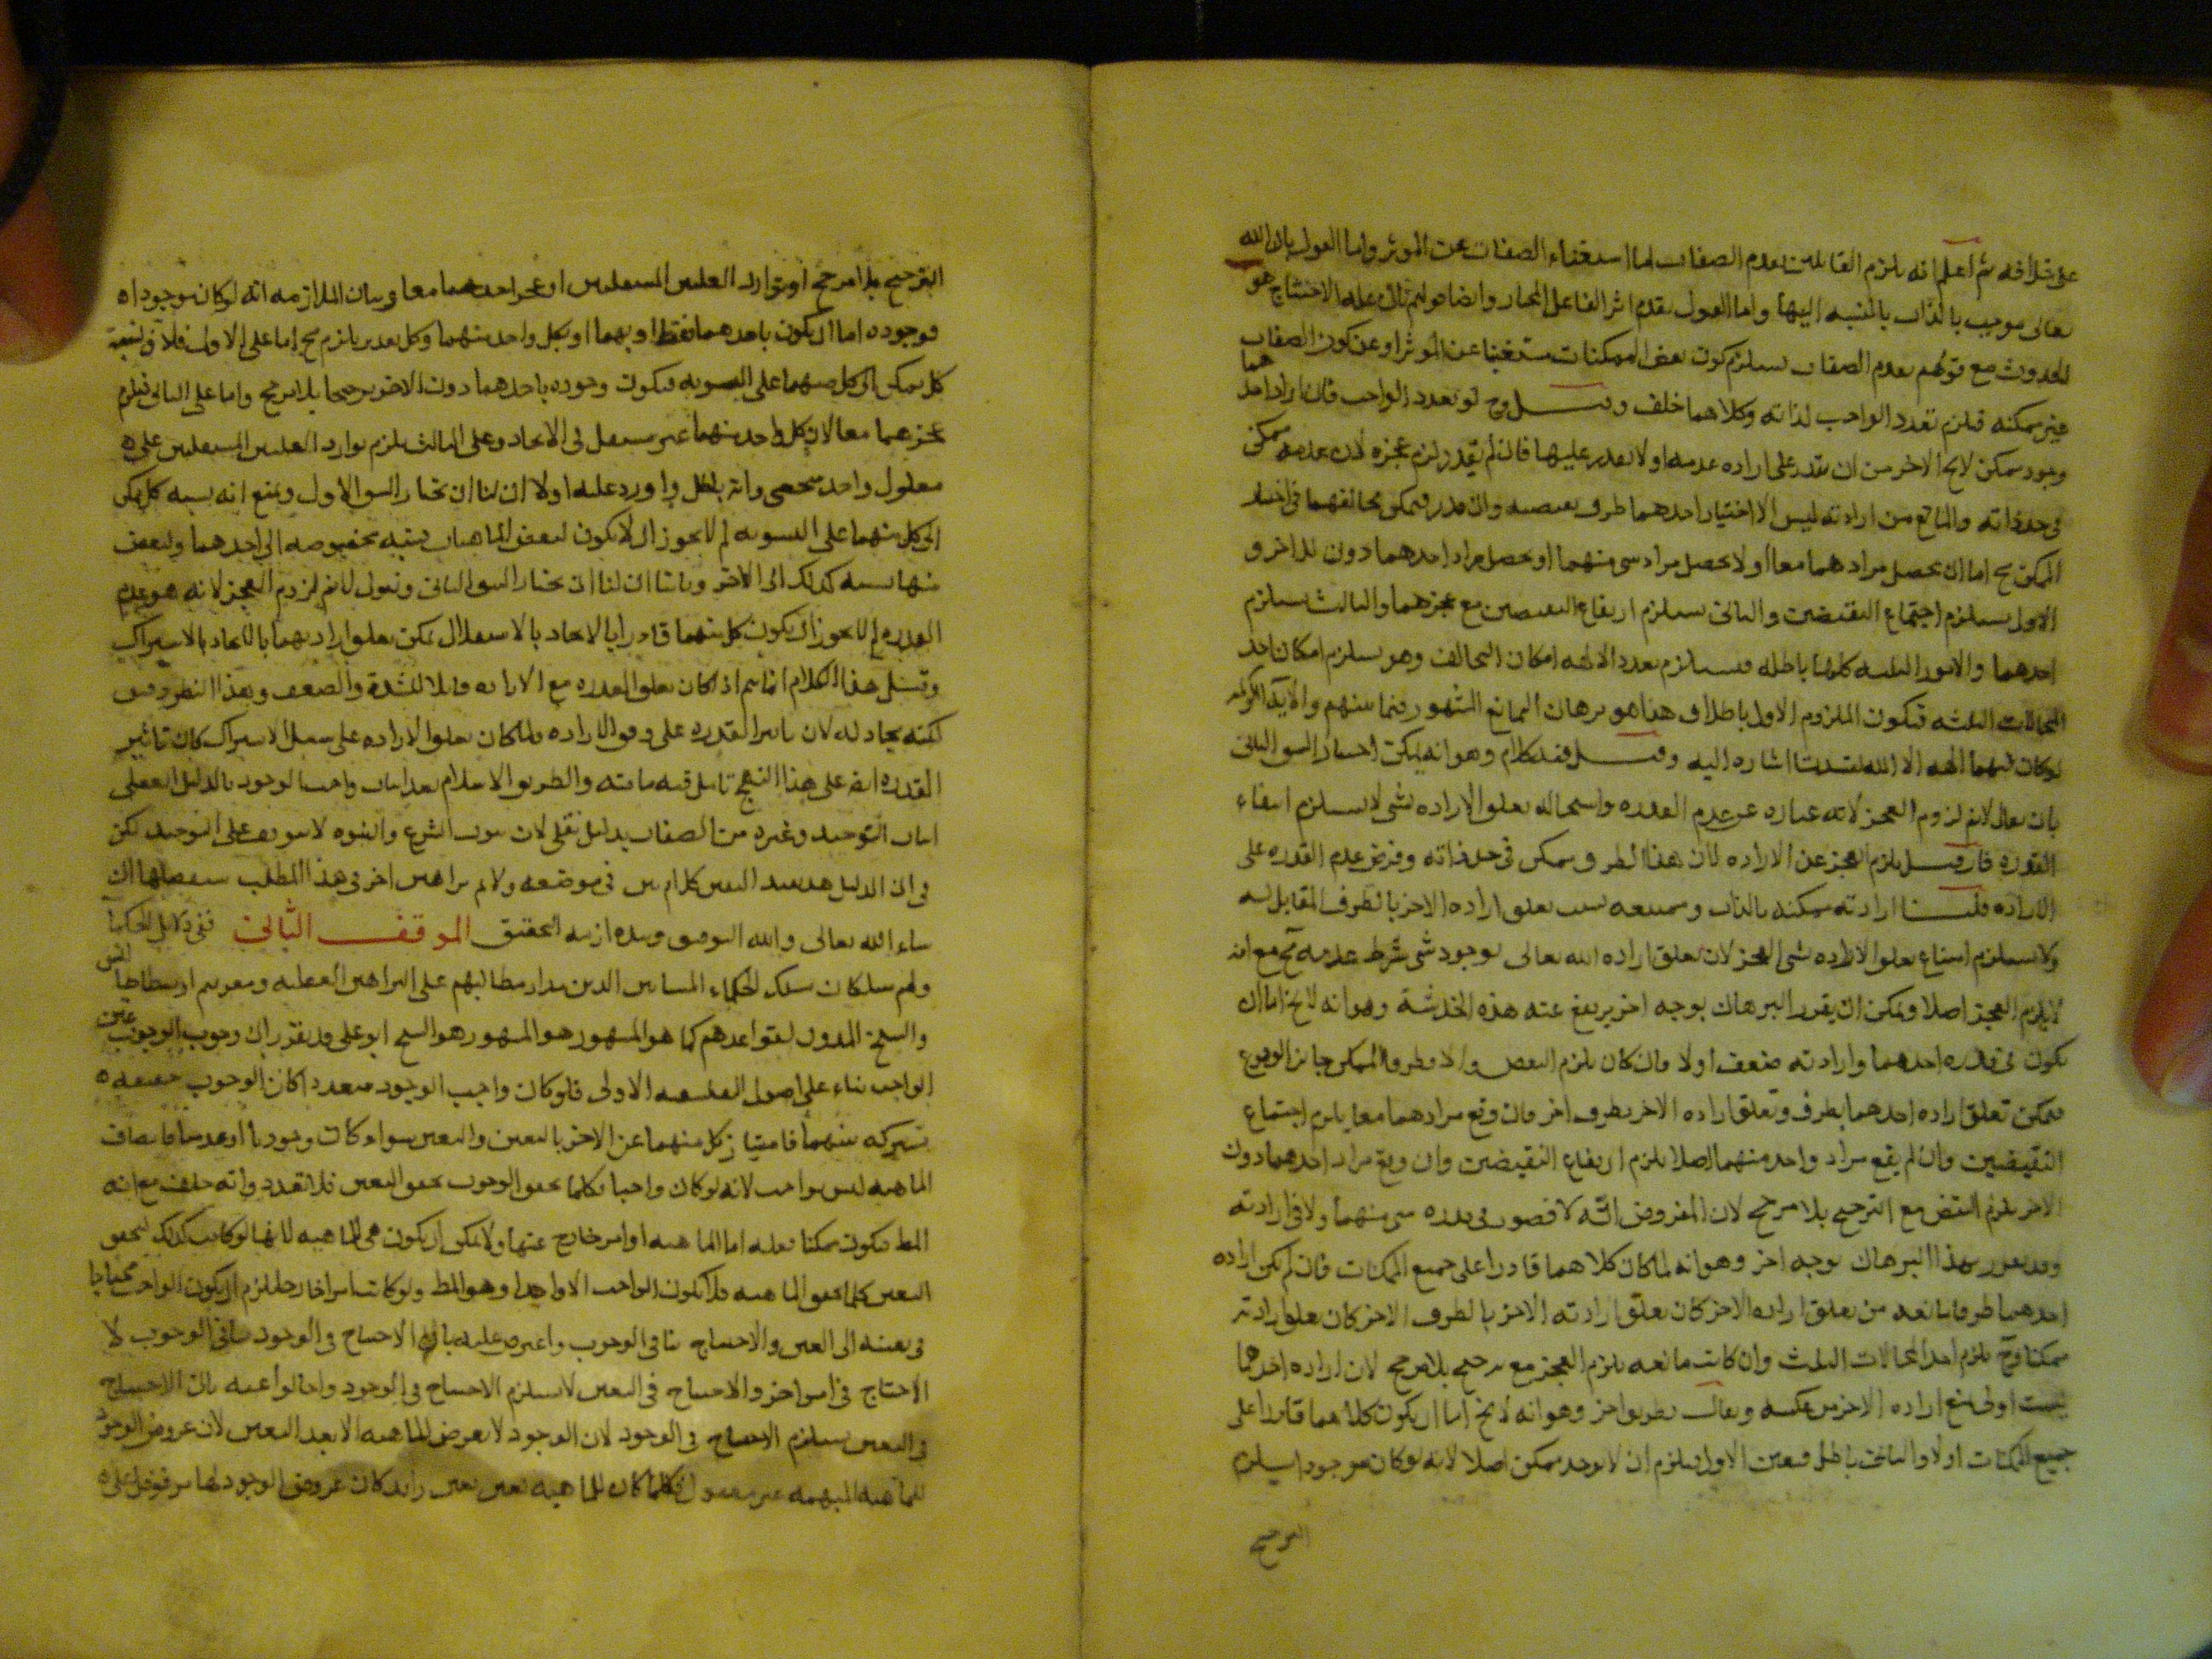 على خلافه ثم اعلم انه يلزم القائلين بعدم الصفات لما استغناء الصفات عن الموثر واما القول بان الله
تعالى موجب بالذات بالنسبه اليها واما القول بقدم اثر الفاعل المختار وايضا قولهم بان عله الاحتياج هو
الحدوث مع قولهم بعدم الصفات يستلزم كون بعض الممكنات مستغنيا عن الموثر او عن كون الصفات
غير ممكنه فيلزم تعدد الواجب لذاته وكلاهما خلف وح لو تعدد الواجب فان اراد احدهما
وجود ممكن لايخ الاخر من ان يقدر على اراده عدمه او لا يقدر عليها فان لم يقدر لزم عجزه لان عدمه ممكن
في حد ذاته والمانع من ارادته ليس الا اختيار احدهما طرف نقيضه وان قدر فيمكن تخالفهما في
الممكن ح اما ان يحصل مرادهما معا او لا يحصل مراد شي منهما او يحصل مراد احدهما دون الاخر و
الاول يستلزم اجتماع النقيضين والثاني يستلزم ارتفاع النقيضين مع عجزهما والثالث يستلزم
احدهما والامور الثلثه كلها باطله فيستلزم تعدد الاله امكان التخالف وهو يستلزم امكان احد
المحالات الثلثه فيكون الملزوم الاول باطلا و هذا هو برهان التمانع المشهور فيما بينهم والآيه الكريمه
لوكان فيهما الهه الا الله لفسدتا اشاره اليه وفيه كلام وهو انه يمكن اختيار الشق الثاني
بان يقال لانم لزوم العجز لانه عباره عن عدم القدره واستحاله تعلق الاراده بشي لا يستلزم انتفاء
القدره فان قيل يلزم العجز عن الاراده لان هذا الطرف ممكن في حد ذاته وفرض عدم القدره على
الاراده قلنا ارادته ممكنه بالذات وممتنعه بسبب تعلق اراده الاخر بالطرف المقابل له
ولا يستلزم امتناع تعلق الاراده بشي العجز لان تعلق اراده الله تعالى بوجود شي بشرط عدمه مح مع انه
لايلزم العجز اصلا ويمكن ان يقرر البرهان بوجه اخر يرتفع عنه هذه الخدشة وهو انه لايخ اما ان
يكون في قدره احدهما وارادته ضعف او لا فان كان يلزم النقص والا فطرفا الممكن جايز الوقوع
فيمكن تعلق اراده احدهما بطرف وتعلق اراده الاخر بطرف اخر فان وقع مرادهما معا يلزم اجتماع
النقيضين وان لم يقع مراد واحد منهما اصلا يلزم ارتفاع النقيضين وان وقع مراد احدهما دون
الاخر يلزم النقض مع الترجيح بلا مرجح لان المفروض انه لا قصور في قدره شي منهما ولا في ارادته
وقد يقرر هذا البرهان بوجه اخر وهو انه لما كان كلاهما قادرا على جميع الممكنات فان لم يكن اراده
احدهما طرفا مانعه من تعلق اراده الاخر كان تعلق ارادته الاخر بالطرف الاخر كان تعلق ارادته
ممكنا وح يلزم احد المحالات الثلث وان كانت مانعه يلزم العجز مع ترجيح بلا مرجح لان اراده احدهما
ليست اولى بمنع اراده الاخر من عكسه ويقال بطريق اخر وهو انه لايخ اما ان يكون كلاهما قادرا على
جميع الممكنات او لا والثاني باطل فتعين الاول فيلزم ان لا يوجد ممكن اصلا لانه لوكان موجودا يلزم
الترجيح
الترجيح بلا مرجح او توارد العلتين المستقلتين او عجز احدهما معا وبيان الملازمه انه لوكان موجودا
فوجوده اما ان يكون باحدهما فقط او بهما او بكل واحد منهما وكل تقدير يلزم مح اما على الاول فلان نسبة
كل ممكن الى كل منهما على السويه فيكون وجوده باحدهما دون الاخر ترجيحا بلا مرجح واما على الثاني فيلزم
عجزهما معا لان كل واحد منهما غير مستقل في الايجاد وعلى الثالث يلزم توارد العلتين المستقلتين على
معلول واحد شخصي وانه باطل واورد عليه اولا ان لنا ان نختار الشق الاول ونمنع انه نسبه كل ممكن
الى كل منهما على السويه لم لا يجوز ان لا يكون لبعض الماهيات نسبه مخصوصه الى احدهما ولبعض
منها نسبه كذلك الى الاخر وثانيا ان لنا ان نختار الشق الثاني ونقول لانم لزوم العجز لانه هو عدم
القدره لم لا يجوز ان يكون كل منهما قادرا بالايجاد بالاستقلال لكن تعلق ارادتهما بالايجاد بالاشتراك
وقيل هذا الكلام انما يتم اذا كان تعلق القدره مع الاراده قابلا للشدة والضعف وبهذا النظر دقيق
لكنه مجادله لان تاثير القدره على وفق الاراده فلما كان تعلق الاراده على سبيل الاشتراك كان تاثير
القدره ايضا على هذا النهج تامل فيه مامنه والطريق الاسلام بعد اثبات واجب الوجود بالدليل العقلي
اثبات التوحيد وغيره من الصفات بدليل نقلي لان ثبوت الشرع والنبوه لا يتوقف على التوحيد لكن
في ان الدليل هل يفيد اليقين كلام بين في موضعه ولهم براهين اخر في هذا المطلب سنفصلها ان
شاء الله تعالى والله التوفيق وبيده ازمه التحقيق الموقف الثاني ففي دلايل الحكما
ولهم مسلكان مسلك الحكماء المشايين الذين مدار مطالبهم على البراهين العقليه ومعربهم ارسطاطاليس
والشيخ المدون لقواعدهم كما هو المشهور هو المشهور هو الشيخ ابو على وقد تقرر ان وجوب الوجود عين
الواجب بناء على اصول الفلسفه الاولى فلوكان واجب الوجود متعددا كان الوجوب حقيقه
مشتركه بينهما فامتياز كل منهما عن الاخر بالتعين والتعين سواء كان وجوديا او عدميا
الماهيه ليس بواجب لانه لو كان واجبا فكلما تحقق الوجوب تحقق التعين فلا تعدد وانه خلف مع انه
المط فيكون ممكنا فعله اما الماهيه او امر خارج عنها ولا يمكن ان يكون هي الماهيه لانها لو كانت كذلك لتحقق
التعين كلما تحقق الماهيه فلا يكون الواجب الا واحدا وهو المط ولو كانت امرا خارجا يلزم ان يكون الواجب محتاجا
في تعينه الى الغير والاحتياج ينافي الوجوب واعترض عليه بان الاحتياج في الوجود ينافي الوجوب لا
الاحتياج في امر اخر والاحتياج في التعين لا يستلزم الاحتياج في الوجود واجابوا عنه بان الاحتياج
في التعين يستلزم الاحتياج في الوجود لان الوجود لا يعرض الماهيه الا بعد التعين لان عروض الوجود
للماهيه المبهمه غير معقول فكلما كان للماهيه تعين زايد كان عروض الوجود لها